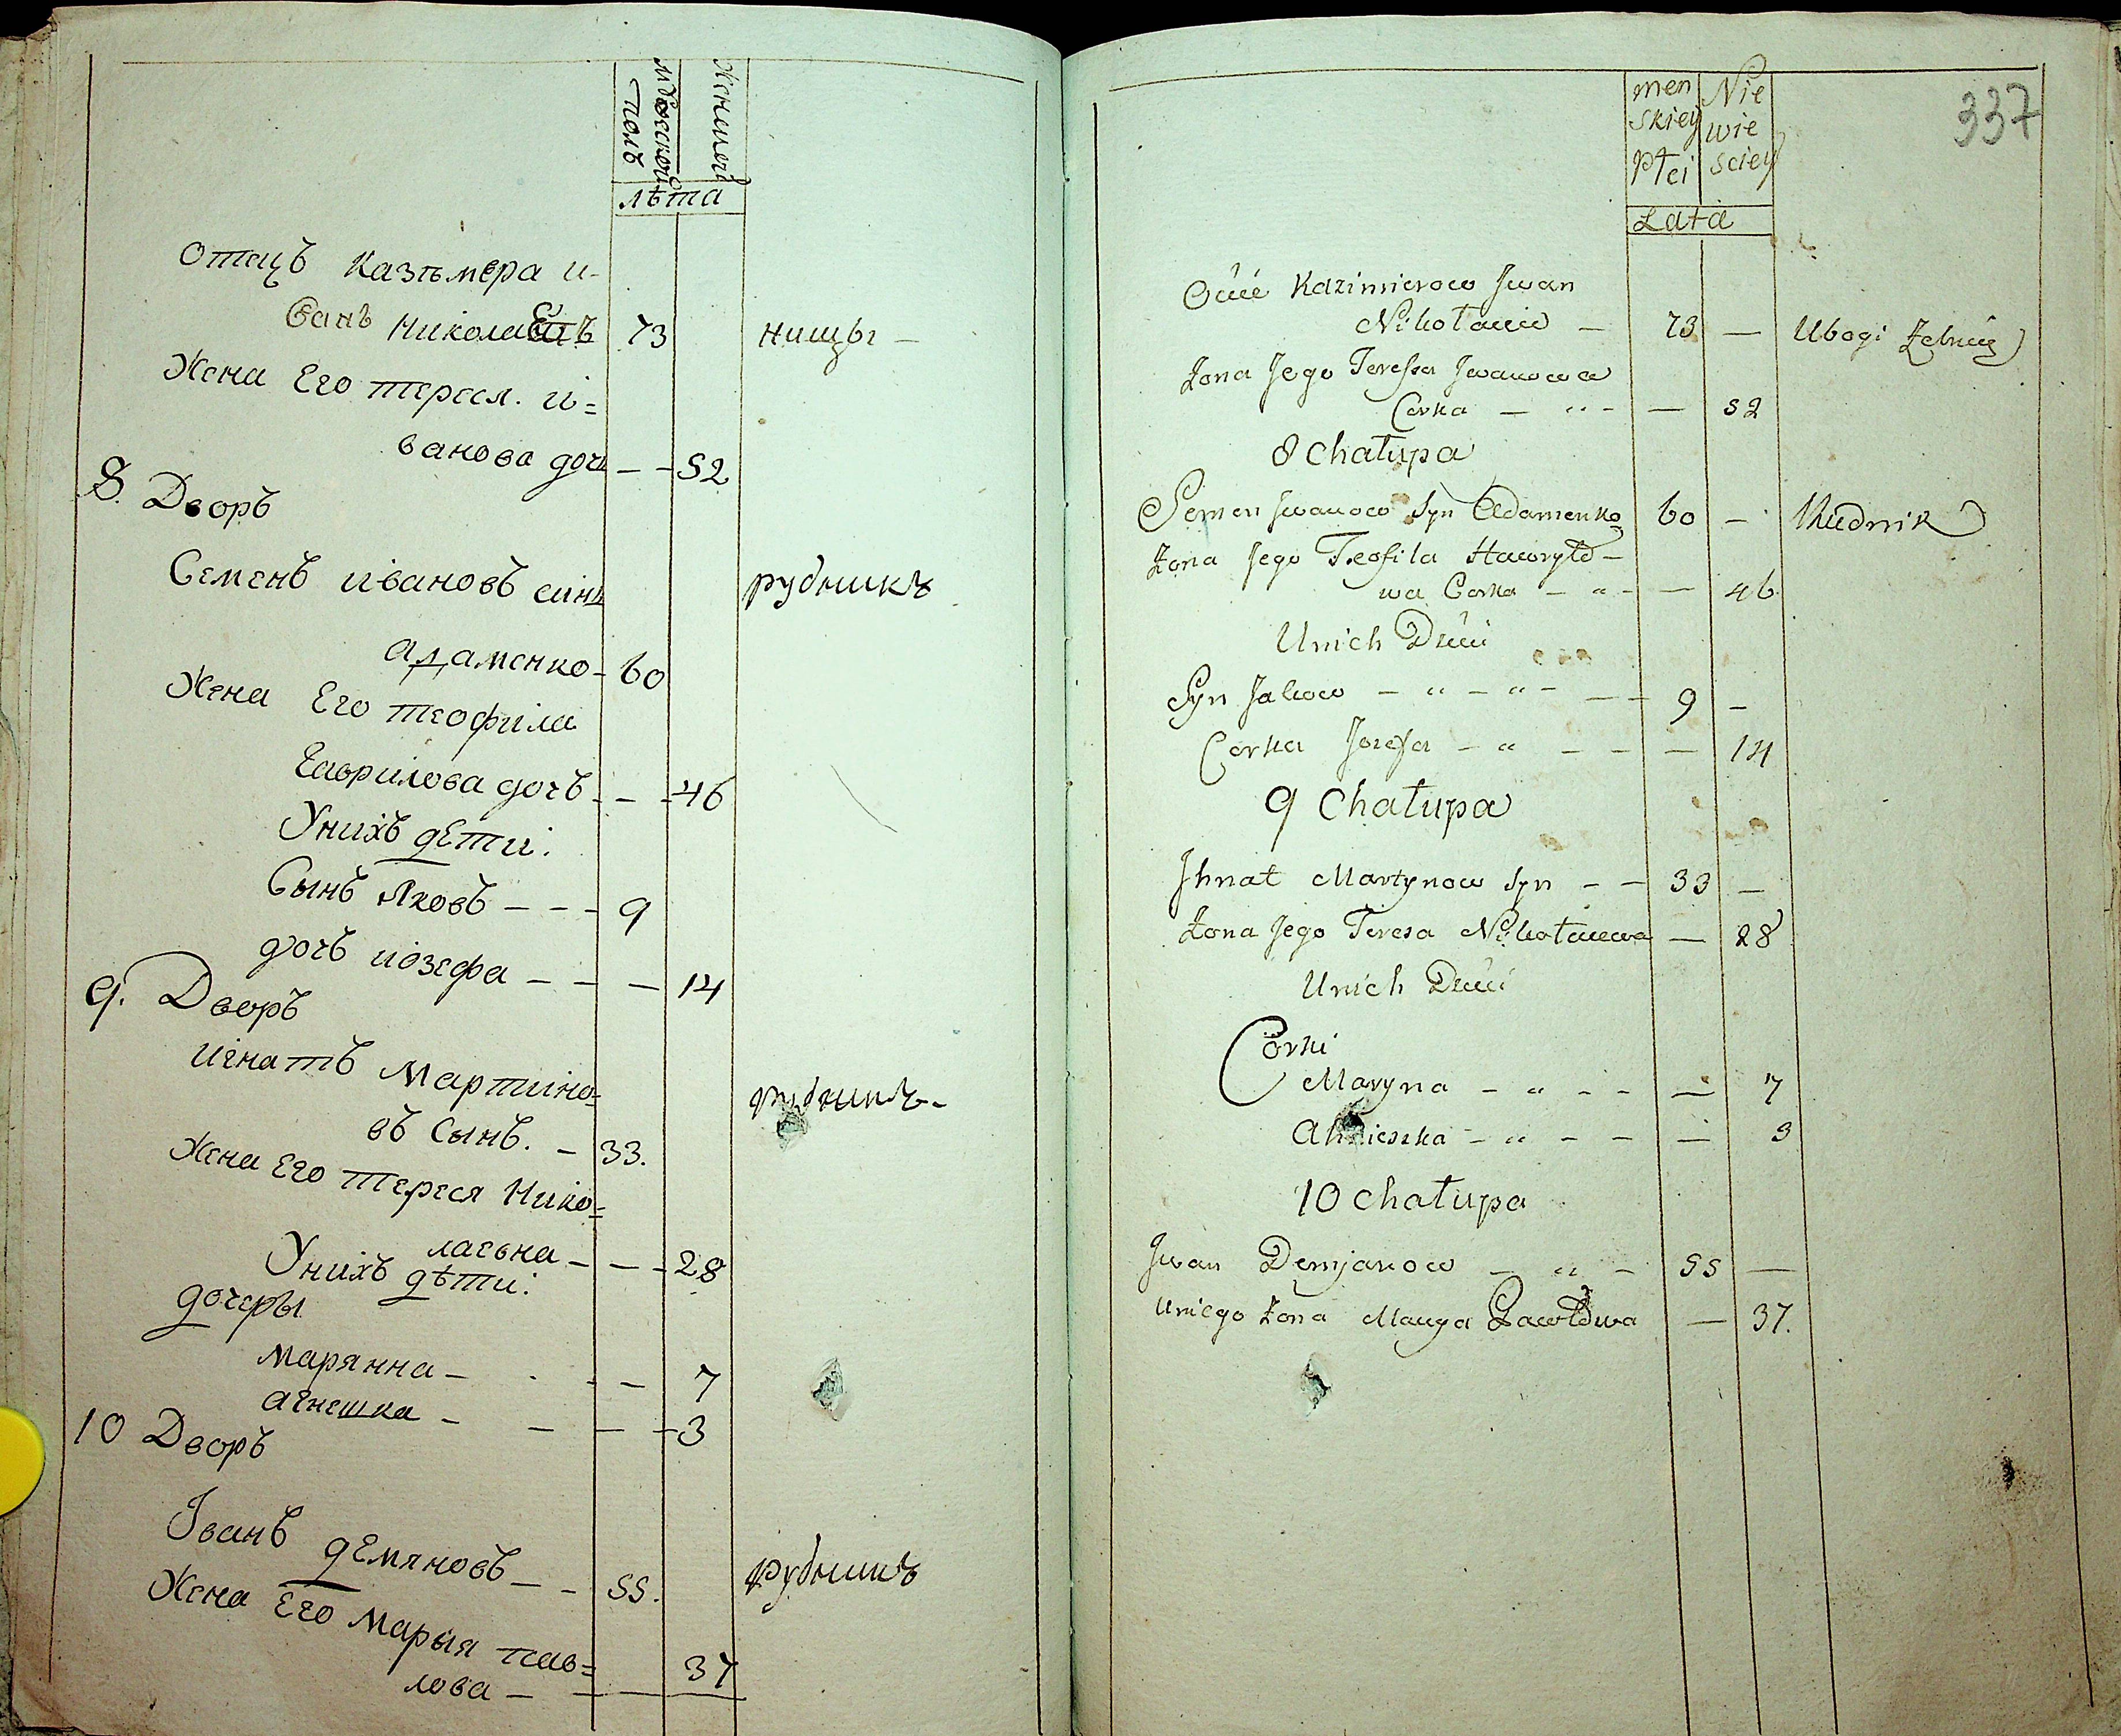 мужской
полъ
Женской
лѣта
Отецъ Казѣмера и-
ванъ николаевъ 73 нищы –
Жена Его тереся. и=
ванова дочъ – – 52
8. Дворъ
Семенъ ивановъ синъ рудникъ
адаменко – 60
Жена Его теофила
Гаврилова дочъ – – – 46
Унихъ дети:
Сынъ Яковъ – – – 9
дочъ иозефа – – – 14
9. Дворъ
игнатъ Мартино= рудникъ –
въ сынъ. – 33.
Жена Его тереся Нико=
лаевна – – – 28
Унихъ дѣти:
дочеры
марянна – – – 7
агнешка – – – – 3
10 Дворъ
Іванъ демяновъ – – 55. рудникъ
Жена Его Марыя пав=
лова – 37
337
men
skiey
płci
Nie
wie
sciey
Lata
Oćiec Kazimierow Jwan
Nikołaiew – 73 – Ubogi Zebrzący
Zona Jego Teressa Jwanowa
Corka – " – – 52
8 Chałupa
Semen Jwanow Syn Adamenko 60 – Rudnik
Zona Jego Teofila Hawryło–
wa Corka – " – – 46
Unich Dzieci
Syn Jakow – " – " – – 9 –
Corka Jozefa – " – – – 14
9 Chałupa
Jhnat Martynow Syn – – 33 –
Zona Jego Teresa Nikołaiewa – 28
Unich Dzieci
Corki
Maryna – " – – – 7
Ahnieszka – " – – – 3
10 chałupa
Jwan Demjanow – " – 55 –
Uniego Zona Marya Pawłowa – 37.